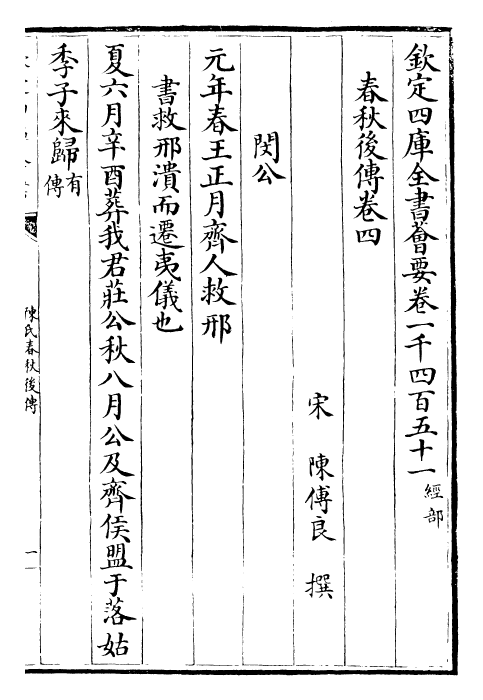 欽定四庫全書薈要卷一千四百五十一 經部
春秋後傳卷四
宋 陳傅良 撰
閔公
元年春王正月齊人救邢
書救邢潰而遷夷儀也
夏六月辛酉葬我君莊公秋八月公及齊侯盟于落姑
季子來歸 有傳
陳氏春秋後傳
一